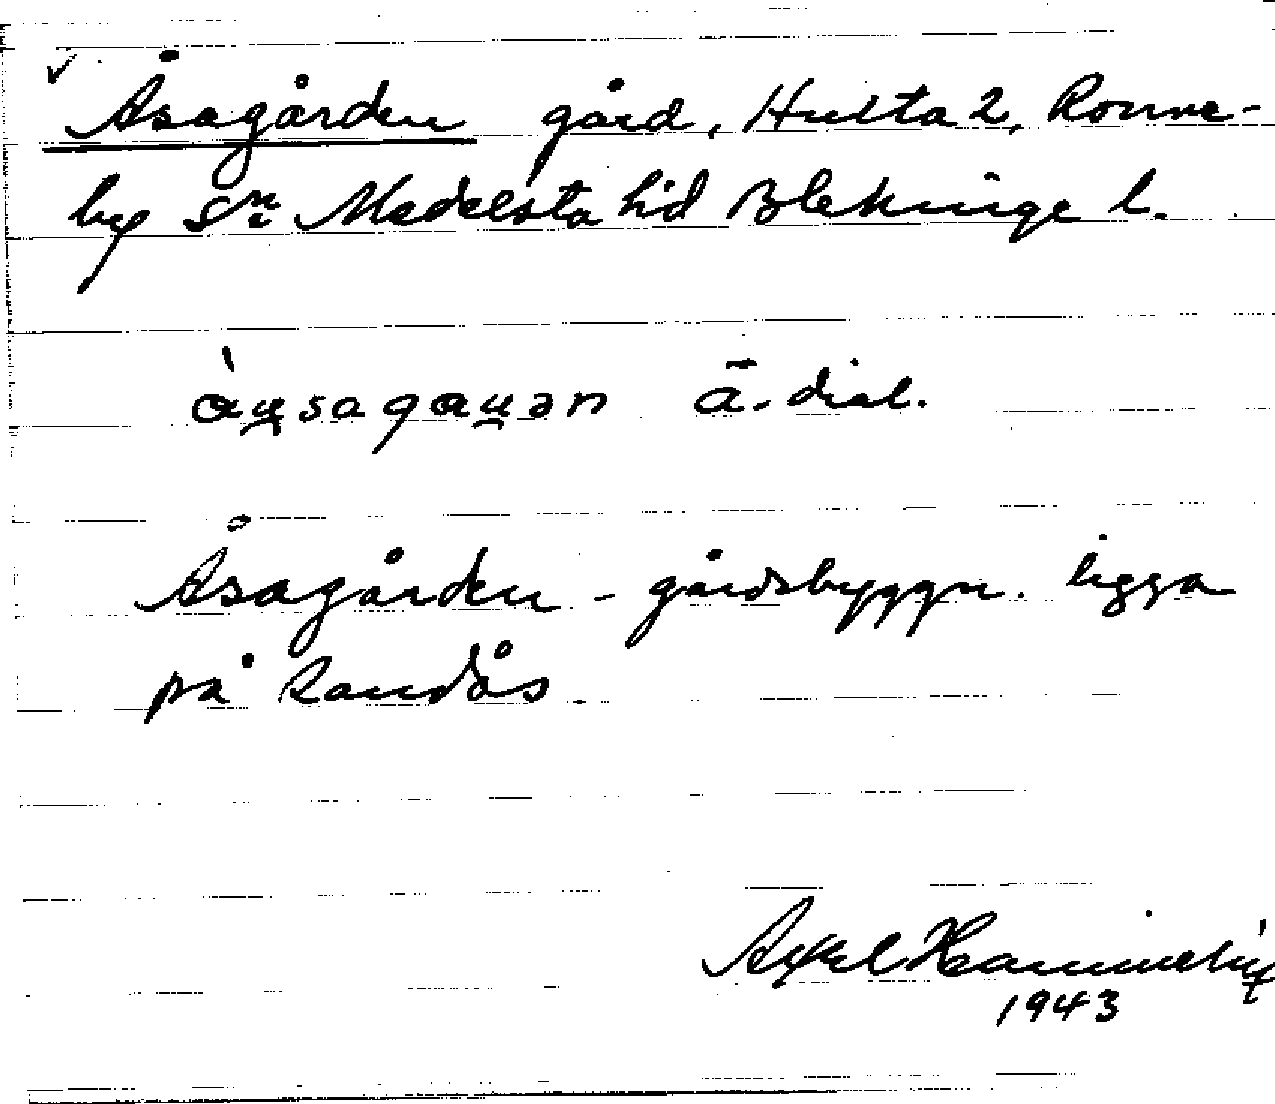 Åsagården gård, Hulta 2, Ronne-
by sn Medelsta hd Blekinge l.
àu̯sagau̯ən ä. dial.
Åsagården - gårdsbyggn. ligga
på Randås
Axel
1943